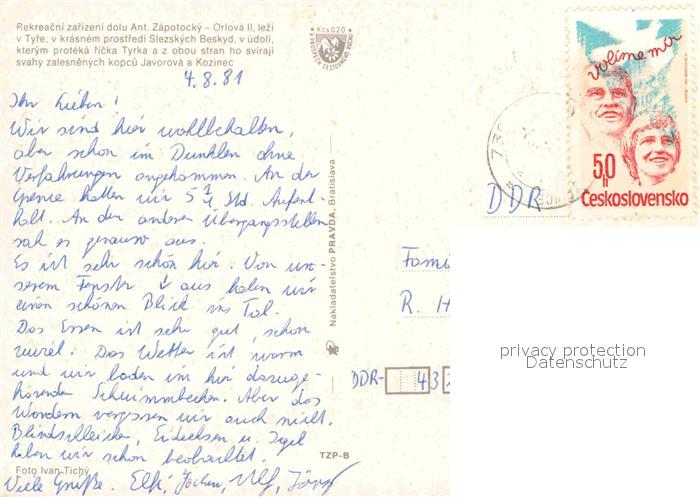 Rekreační zařízení dolu Ant. Zápotocký – Orlová II, leží
v Tyře, v krásném prostředí Slezských Beskyd, v údolí,
kterým protéká říčka Tyrka a z obou stran ho svírají
svahy zalesněných kopců Javorová a Kozinec
4.8.81
Ihr Lieben!
Wir sind hier wohlbehalten,
aber schon im Dunklen ohne
Verfahrungen angekommen. An der
Grenze hatten wir 5 1/4 Std. Aufent-
halt. An den anderen Übergangsstellen
sah es genauso aus.
Es ist sehr schön hier. Von un-
serem Fenster aus haben wir
einen schönen Blick ins Tal.
Das Essen ist sehr gut, schon
zuviel. Das Wetter ist warm
und wir baden im hier dazuge-
hörenden Schwimmbecken. Aber das
Wandern vergessen wir auch nicht.
Blindschleiche, Eidechsen u. Igel
haben wir schon beobachtet.
Viele Grüße. Elfi, Jochen, Ulf, Jörg
Foto Ivan Tichý
TZP-B
Nakladatelství PRAVDA, Bratislava
Kčs 020
volíme mír
50 h
Československo
DDR
Fami
R. H
DDR- 43
privacy protection
Datenschutz